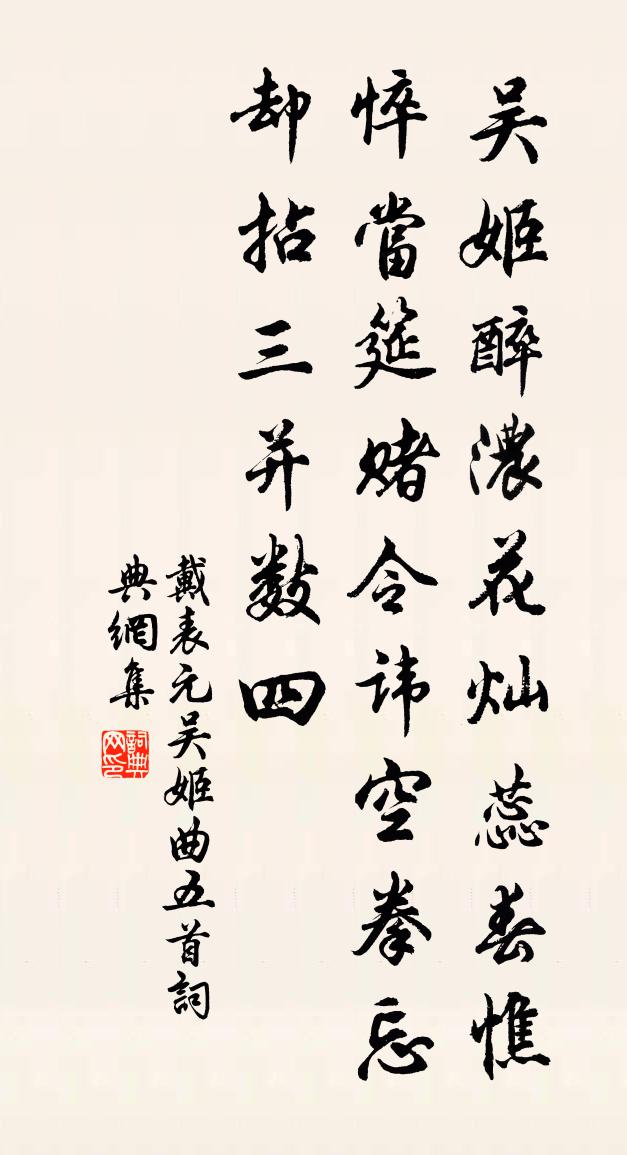 吴姬醉濃花灿蕊春憔
悴當筵赌令讳空拳忘
却拈三并数四
戴表元吴姬曲五首詞
典網集
詞典
网印